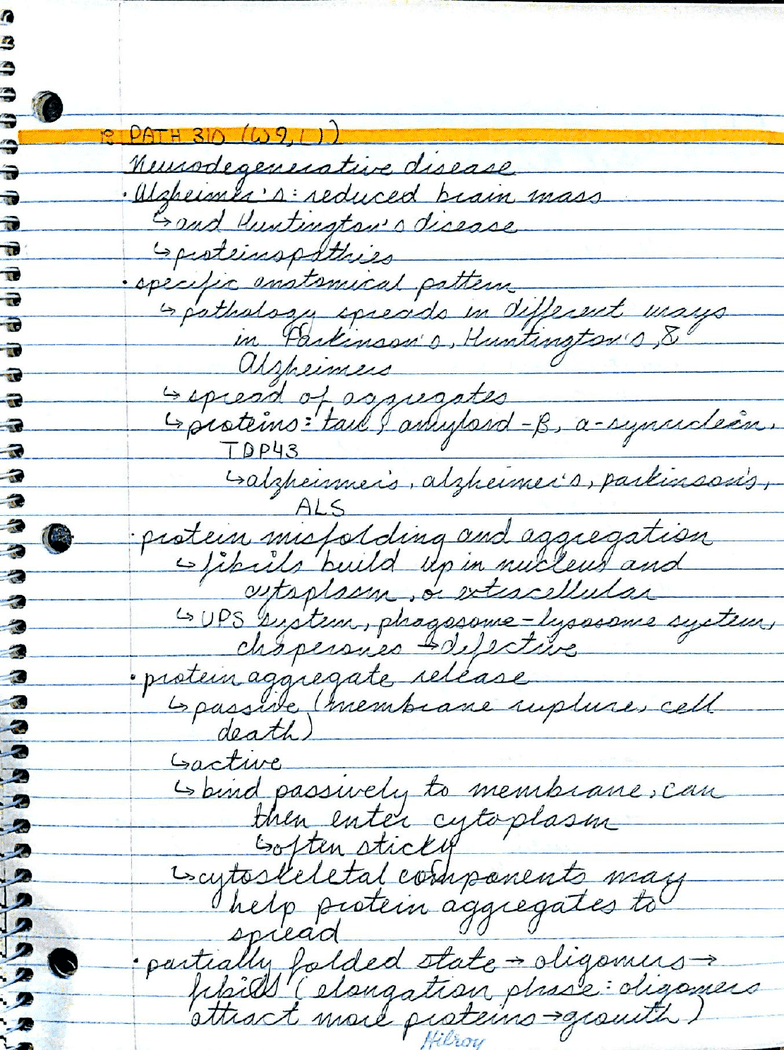 PATH 310 (W9, L1)
Neurodegenerative disease
• Alzheimer's: reduced brain mass
↳ and Huntington's disease
↳ proteinopathies
• specific anatomical pattern
↳ pathology spreads in different ways
in Parkinson's, Huntington's, &
Alzheimers
↳ spread of aggregates
↳ proteins: tau, amyloid-β, α-synuclein,
TDP43
↳ alzheimer's, alzheimer's, parkinson's,
ALS
• protein misfolding and aggregation
↳ fibrils build up in nucleus and
cytoplasm, or extracellular
↳ UPS system, phagosome-lysosome system,
chaperones → defective
• protein aggregate release
↳ passive (membrane rupture, cell
death)
↳ active
↳ bind passively to membrane, can
then enter cytoplasm
↳ often sticky
↳ cytoskeletal components may
help protein aggregates to
spread
• partially folded state → oligomers →
fibrils (elongation phase: oligomers
attract more proteins → growth)
Hilroy